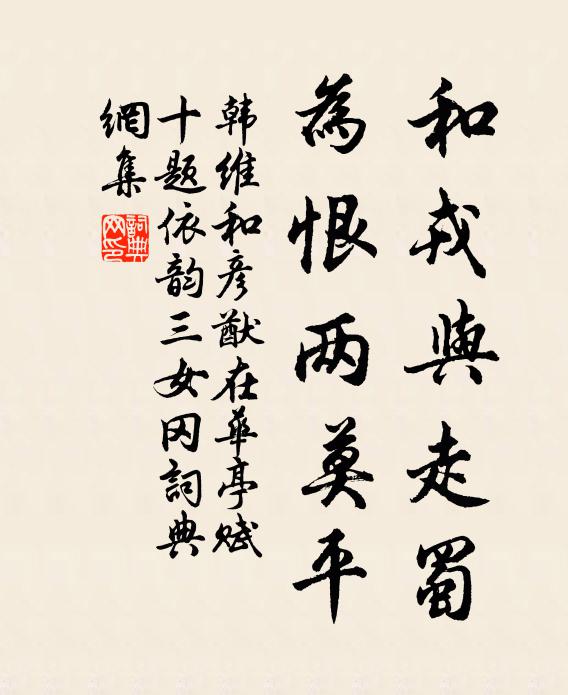 和戎與走蜀
為恨兩莫平
韩維和彦猷在華亭賦
十题依韵三女冈詞典
網集
詞典網印